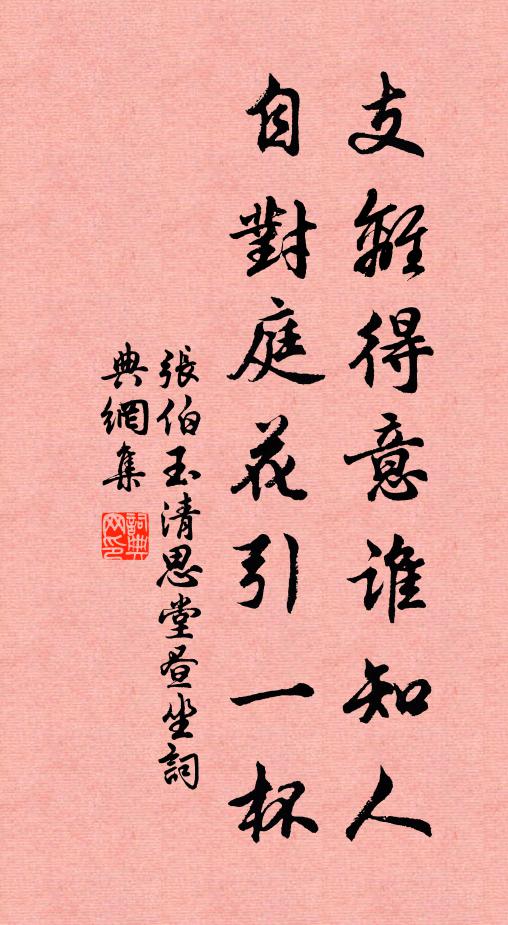 支離得意誰知人
自對庭花引一杯
張伯玉清思堂晝坐詞
典網集
詞典網印